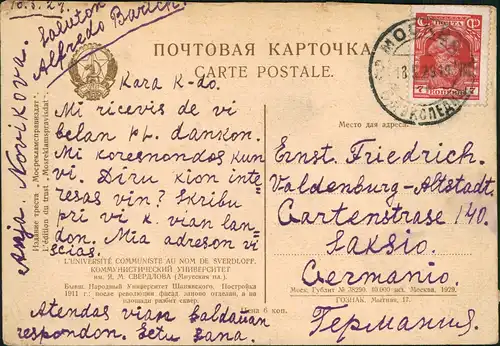 10.3.29.
Saluton
Alfredo
Anja. Novikova.
ПОЧТОВАЯ КАРТОЧКА
CARTE POSTALE.
МОСКВА
ЭКСПЕД
ПОЧТА
7
Kara K-do.
Mi ricevis de vi
belan pk. dankon.
Mi koresnondos kun
vi. Diru kion inte-
resas vin? Skribu
pri vi k. vian lan-
don. Mia adreson vi
scias.
Atendas vian baldauan
respondon. Estu sana.
Издание треста „Мосрекламсправиздат“
L'édition du trust „Mosreklamspravisdat“
L'UNIVERSITÉ COMMUNISTE AU NOM DE SVERDLOFF.
КОММУНИСТИЧЕСКИЙ УНИВЕРСИТЕТ
им. Я. М. СВЕРДЛОВА (Миусская пл.).
Бывш. Народный Университет Шанявского. Постройка
1911 г.; после революции фасад заново отделан, а на
площади разбит сквер.
Цена 6 коп.
Место для адреса
Ernst. Friedrich.
Valdenburg-Altstadt
Gartenstrase 140.
Saksio.
Germanio.
Германия.
Моск. Гублит № 38290. 10.000 экз. Москва, 1929.
ГОЗНАК. Мытная, 17.